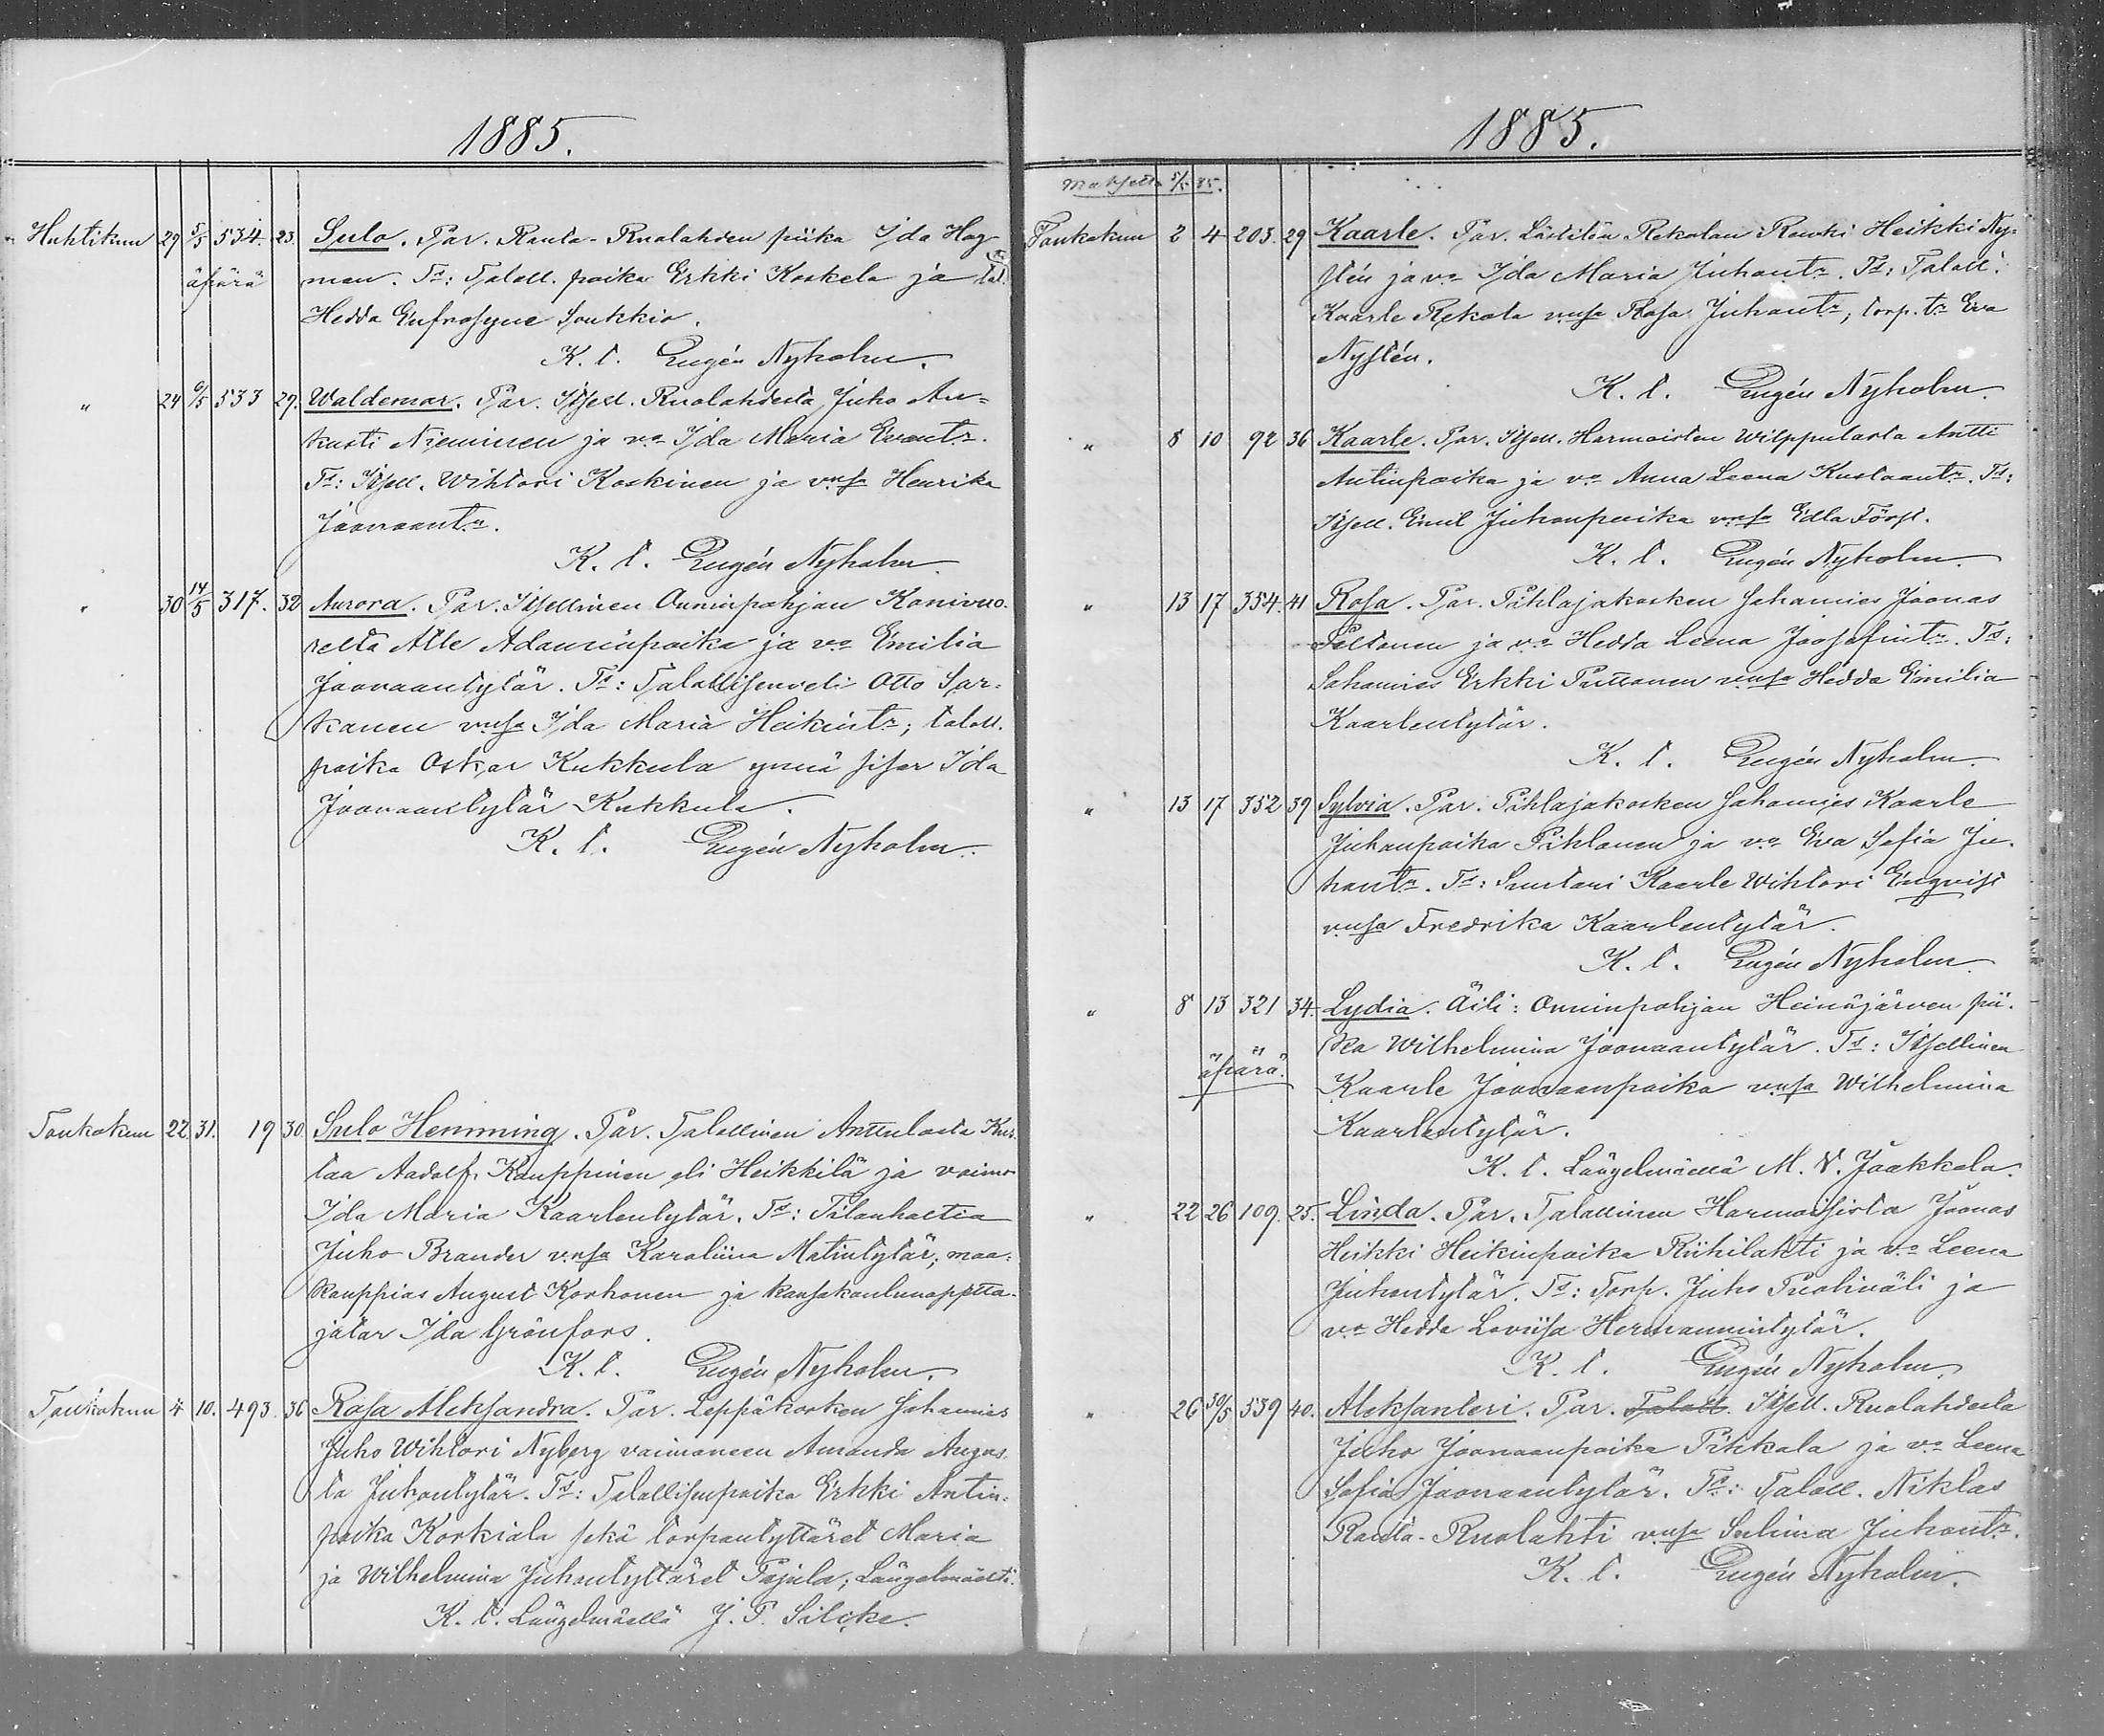 1885.
Huhtikuu 29 5/5 534. 23. Sulo. Par. Ranta-Ruolahden piika Ida Hag-
äpärä man. Ts: Talall. poika Erkki Koskela ja tal.
Hedda Eufrosyne Soukkio.
K. t. Eugén Nyholm.
" 24 6/5 533 29. Waldemar. Par. Itsell. Ruolahdesta Juho An-
kusti Nieminen ja v:o Ida Maria Evant:r.
Ts: Itsell. Wihtori Koskinen ja v:nsa Henrika
Joonaant:r.
K. t. Eugén Nyholm.
" 30 14/5 317. 32 Aurora. Par. Itsellinen Onninpohjan Konivuo-
relta Atle Adaminpoika ja v:o Emilia
Joonaantytär. Ts: Talollisenveli Otto Sar-
kanen v:nsa Ida Maria Heikint:r; talall.
poika Oskar Kukkula ynnä sisar Ida
Joonaantytär Kukkula.
K. t. Eugén Nyholm.
Toukokuu 22 31. 19 30. Sulo Hemming. Par. Talollinen Anttulasta Kus-
taa Aadolf Kauppinen eli Heikkilä ja vaimo
Ida Maria Kaarlentytär. Ts: Tilanhaltia
Juho Brander v:nsa Karoliina Matintytär; maa-
kauppias August Korhonen ja kansakoulunopetta-
jatar Ida Grönfors.
K. t. Eugén Nyholm.
Toukokuu 4 10. 493. 36 Rosa Aleksandra. Par. Leppäkosken Sahamies
Juho Wihtori Nyberg vaimoneen Amanda Augus-
ta Juhontytär. Ts: Talollisenpoika Erkki Antin-
poika Korkiala sekä torpantyttäret Maria
ja Wilhelmina Juhontyttäret Pajula; Längelmäelti.
K. t. Längelmäellä J. P. Silcke.
1885.
Maksettu 5/5 85.
Toukokuu 2 4 203. 29 Kaarle. Par. Lästilän Rekolan Renki Heikki Ny-
stén ja v:o Ida Maria Juhant:r. Ts: Talall.
Kaarle Rekola v:nsa Rosa Juhant:r, torp. t:r Eva
Nystén.
K. t. Eugén Nyholm.
" 8 10 92 36 Kaarle. Par. Itsell. Harmoisten Wilppulasta Antti
Antinpoika ja v:o Anna Leena Kustaant:r. Ts:
Itsell. Emil Juhonpoika v:nsa EdlaFörs.
K. t. Eugén Nyholm.
" 13 17 354. 41 Rosa. Par. Pihlajakosken Sahamies Joonas
Peltonen ja v:o Hedda Leena Joosefint:r. Ts:
Sahamies Erkki Puttonen v:nsa Hedda Emilia
Kaarlentytär.
K. t. Eugén Nyholm.
" 13 17 352 39 Sylvia. Par. Pihlajakosken Sahamies Kaarle
Juhanpoika Pihlanen ja v:o Eva Sofia Ju-
hant:r. Ts: Suutari Kaarle Wihtori Enqvist
v:nsa Fredrika Kaarlentytär.
K. t. Eugén Nyholm.
" 8 13 321 34. Lydia. Äiti: Onninpohjan Heinäjärven pii-
äpärä. ka Wilhelmina Joonaantytär. Ts: Itsellinen
Kaarle Joonaanpoika v:nsa Wilhelmina
Kaarlentytär.
K. t. Längelmäellä M. V. Jaakkola.
" 22 26 109. 25. Linda. Par. Talollinen Harmoisista Joonas
Heikki Heikinpoika Riihilahti ja v:o Leena
Juhontytär. Ts: Torp. Juho Puoliväli ja
v:o Hedda Loviisa Hermannintytär.
K. t. Eugén Nyholm.
" 26 30/5 539 40. Aleksanteri. Par. Talall. Itsell. Ruolahdesta
Juho Joonaanpoika Pihkala ja v:o Leena
Sofia Joonaantytär. Ts: Talall. Niklas
Ranta-Ruolahti v:nsa Selina Juhont:r.
K. t. Eugén Nyholm.